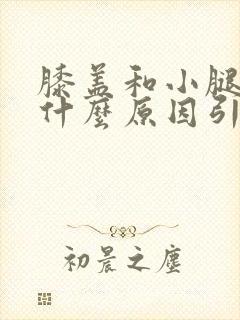 膝盖和小腿
什麼原因引
初晨之塵